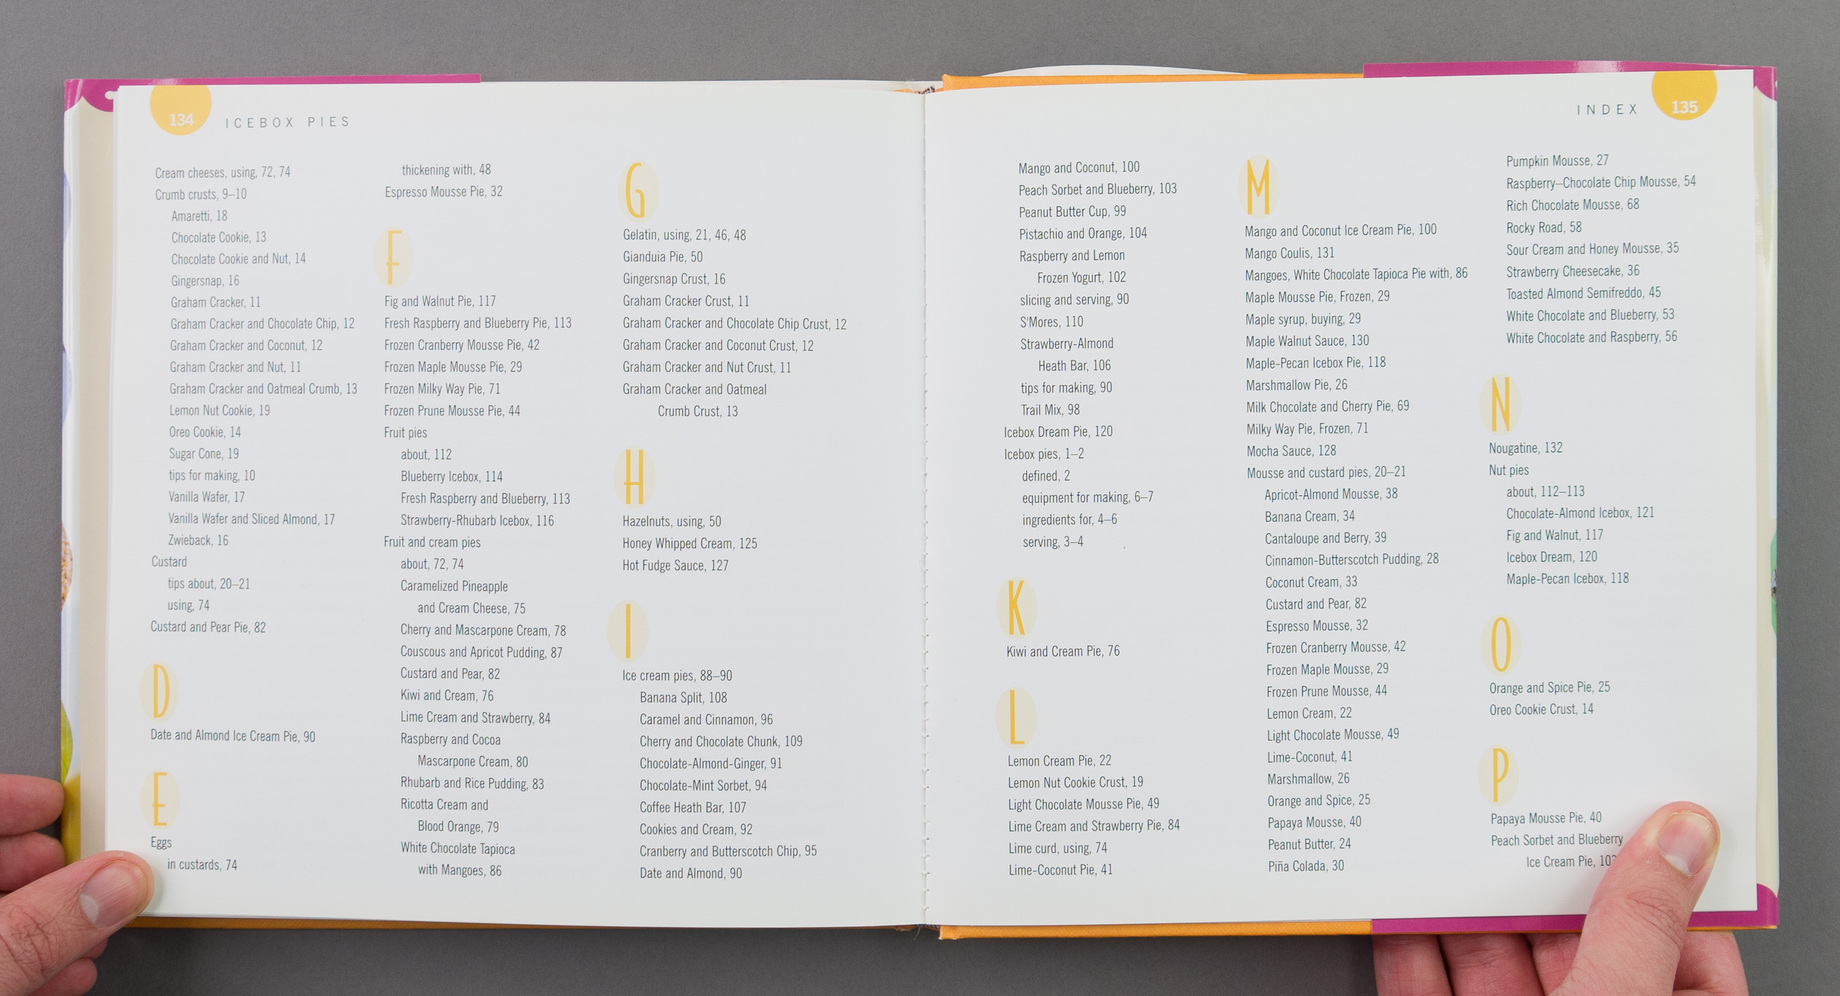 134
ICEBOX PIES
Cream cheeses, using, 72, 74
Crumb crusts, 9–10
Amaretti, 18
Chocolate Cookie, 13
Chocolate Cookie and Nut, 14
Gingersnap, 16
Graham Cracker, 11
Graham Cracker and Chocolate Chip, 12
Graham Cracker and Coconut, 12
Graham Cracker and Nut, 11
Graham Cracker and Oatmeal Crumb, 13
Lemon Nut Cookie, 19
Oreo Cookie, 14
Sugar Cone, 19
tips for making, 10
Vanilla Wafer, 17
Vanilla Wafer and Sliced Almond, 17
Zwieback, 16
Custard
tips about, 20–21
using, 74
Custard and Pear Pie, 82
D
Date and Almond Ice Cream Pie, 90
E
Eggs
in custards, 74
thickening with, 48
Espresso Mousse Pie, 32
F
Fig and Walnut Pie, 117
Fresh Raspberry and Blueberry Pie, 113
Frozen Cranberry Mousse Pie, 42
Frozen Maple Mousse Pie, 29
Frozen Milky Way Pie, 71
Frozen Prune Mousse Pie, 44
Fruit pies
about, 112
Blueberry Icebox, 114
Fresh Raspberry and Blueberry, 113
Strawberry-Rhubarb Icebox, 116
Fruit and cream pies
about, 72, 74
Caramelized Pineapple
and Cream Cheese, 75
Cherry and Mascarpone Cream, 78
Couscous and Apricot Pudding, 87
Custard and Pear, 82
Kiwi and Cream, 76
Lime Cream and Strawberry, 84
Raspberry and Cocoa
Mascarpone Cream, 80
Rhubarb and Rice Pudding, 83
Ricotta Cream and
Blood Orange, 79
White Chocolate Tapioca
with Mangoes, 86
G
Gelatin, using, 21, 46, 48
Gianduia Pie, 50
Gingersnap Crust, 16
Graham Cracker Crust, 11
Graham Cracker and Chocolate Chip Crust, 12
Graham Cracker and Coconut Crust, 12
Graham Cracker and Nut Crust, 11
Graham Cracker and Oatmeal
Crumb Crust, 13
H
Hazelnuts, using, 50
Honey Whipped Cream, 125
Hot Fudge Sauce, 127
I
Ice cream pies, 88–90
Banana Split, 108
Caramel and Cinnamon, 96
Cherry and Chocolate Chunk, 109
Chocolate-Almond-Ginger, 91
Chocolate-Mint Sorbet, 94
Coffee Heath Bar, 107
Cookies and Cream, 92
Cranberry and Butterscotch Chip, 95
Date and Almond, 90
INDEX
135
Mango and Coconut, 100
Peach Sorbet and Blueberry, 103
Peanut Butter Cup, 99
Pistachio and Orange, 104
Raspberry and Lemon
Frozen Yogurt, 102
slicing and serving, 90
S'Mores, 110
Strawberry-Almond
Heath Bar, 106
tips for making, 90
Trail Mix, 98
Icebox Dream Pie, 120
Icebox pies, 1–2
defined, 2
equipment for making, 6–7
ingredients for, 4–6
serving, 3–4
K
Kiwi and Cream Pie, 76
L
Lemon Cream Pie, 22
Lemon Nut Cookie Crust, 19
Light Chocolate Mousse Pie, 49
Lime Cream and Strawberry Pie, 84
Lime curd, using, 74
Lime-Coconut Pie, 41
M
Mango and Coconut Ice Cream Pie, 100
Mango Coulis, 131
Mangoes, White Chocolate Tapioca Pie with, 86
Maple Mousse Pie, Frozen, 29
Maple syrup, buying, 29
Maple Walnut Sauce, 130
Maple-Pecan Icebox Pie, 118
Marshmallow Pie, 26
Milk Chocolate and Cherry Pie, 69
Milky Way Pie, Frozen, 71
Mocha Sauce, 128
Mousse and custard pies, 20–21
Apricot-Almond Mousse, 38
Banana Cream, 34
Cantaloupe and Berry, 39
Cinnamon-Butterscotch Pudding, 28
Coconut Cream, 33
Custard and Pear, 82
Espresso Mousse, 32
Frozen Cranberry Mousse, 42
Frozen Maple Mousse, 29
Frozen Prune Mousse, 44
Lemon Cream, 22
Light Chocolate Mousse, 49
Lime-Coconut, 41
Marshmallow, 26
Orange and Spice, 25
Papaya Mousse, 40
Peanut Butter, 24
Piña Colada, 30
Pumpkin Mousse, 27
Raspberry–Chocolate Chip Mousse, 54
Rich Chocolate Mousse, 68
Rocky Road, 58
Sour Cream and Honey Mousse, 35
Strawberry Cheesecake, 36
Toasted Almond Semifreddo, 45
White Chocolate and Blueberry, 53
White Chocolate and Raspberry, 56
N
Nougatine, 132
Nut pies
about, 112–113
Chocolate-Almond Icebox, 121
Fig and Walnut, 117
Icebox Dream, 120
Maple-Pecan Icebox, 118
O
Orange and Spice Pie, 25
Oreo Cookie Crust, 14
P
Papaya Mousse Pie, 40
Peach Sorbet and Blueberry
Ice Cream Pie,